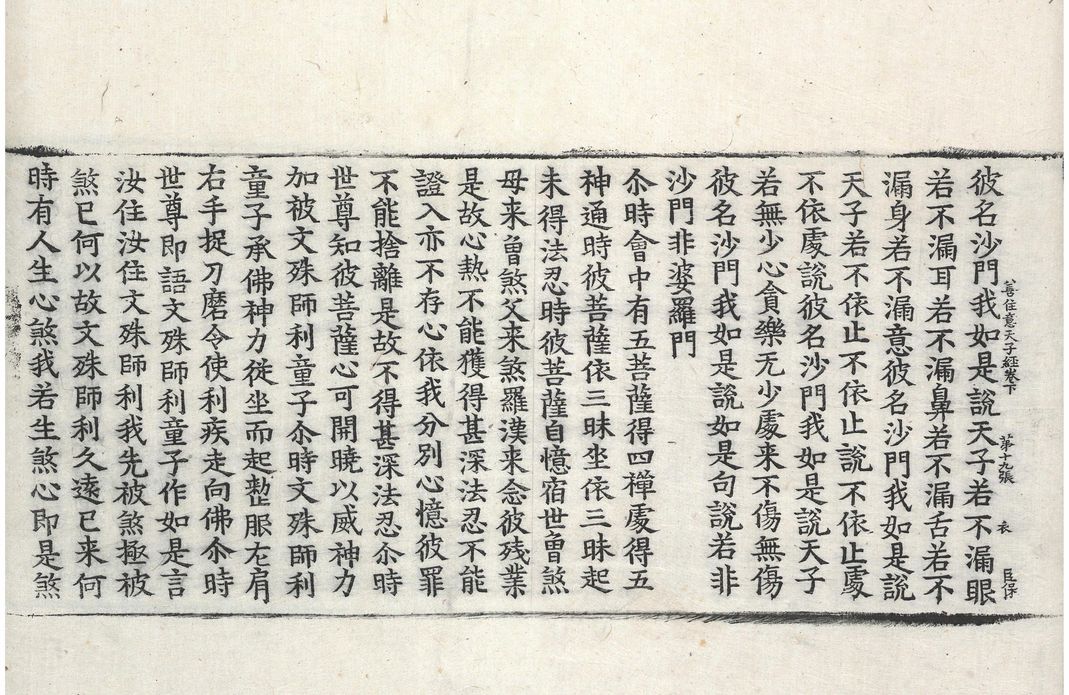 善住意天子經卷下 苐十九張 衣 臣保
彼名沙門我如是說天子若不漏眼
若不漏耳若不漏鼻若不漏舌若不
漏身若不漏意彼名沙門我如是說
天子若不依止不依止說不依止處
不依處說彼名沙門我如是說天子
若無少心貪樂无少處来不傷無傷
彼名沙門我如是說如是句說若非
沙門非婆羅門
尒時會中有五菩薩得四禪處得五
神通時彼菩薩依三昧坐依三昧起
未得法忍時彼菩薩自憶宿世曾煞
母来曾煞父来煞羅漢来念彼残業
是故心熱不能獲得甚深法忍不能
證入亦不存心依我分別心憶彼罪
不能捨離是故不得甚深法忍尒時
世尊知彼菩薩心可開曉以威神力
加被文殊師利童子尒時文殊師利
童子承佛神力從坐而起整服左肩
右手捉刀磨令使利疾走向佛尒時
世尊即語文殊師利童子作如是言
汝住汝住文殊師利我先被煞極被
煞已何以故文殊師利久遠已来何
時有人生心煞我若生煞心即是煞